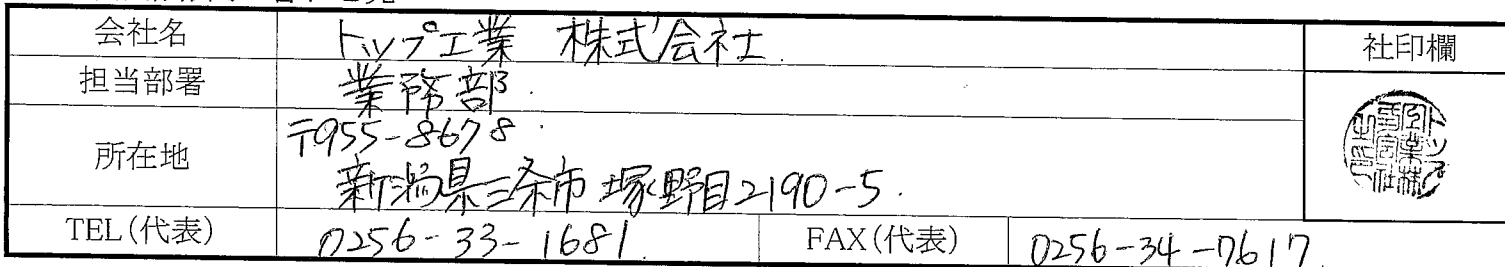 会社名 トップ工業 株式会社 社印欄
担当部署 業務部
所在地 〒955-8678
新潟県三条市塚野目2190-5
TEL(代表) 0256-33-1681 FAX(代表) 0256-34-7617